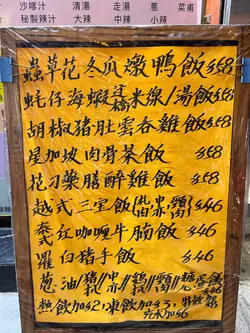 沙嗲汁 清湯 走湯 蔥 菜甫
秘製辣汁 大辣 中辣 小辣
蟲草花冬瓜燉鴨飯 $58
蚝仔海蝦過橋米線/湯飯 $58
胡椒豬肚雲吞雞飯 $58
星加坡肉骨茶飯 $58
花刀藥膳醉雞飯 $58
越式三寶飯 $46
泰式紅咖喱牛腩飯 $46
白豬手飯 $46
蔥油 飯 $46
熱飲加$2,凍飲加$3,特飲